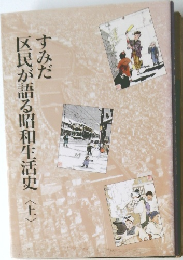 すみだ
区民が語る昭和生活史〈上〉